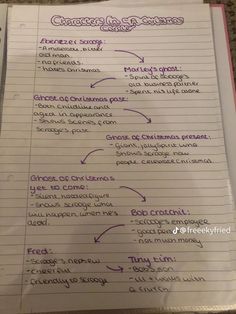 Characters in A Christmas
Carol
Ebenezer Scrooge:
- A miserly, bitter
old man
- no friends.
- hates christmas
Marley's ghost:
- Spirit of Scrooge's
old business partner
- Spent his life alone
Ghost of Christmas past:
- Both childlike and
aged in appearance
- Shows scenes from
Scrooge's past
Ghost of Christmas present:
- Giant, jolly spirit who
Shows Scrooge how
people celebrate Christmas.
Ghost of Christmas
yet to come:
- Silent, hooded figure
- Shows scrooge what
will happen when he's
dead.
Bob Cratchit:
- Scrooge's employee
- good
- not much money
@freeekyfried
Fred:
- Scrooge's nephew
- Cheerful
- Friendly to Scrooge
Tiny Tim:
- Bob's son
- ill + walks with
a crutch